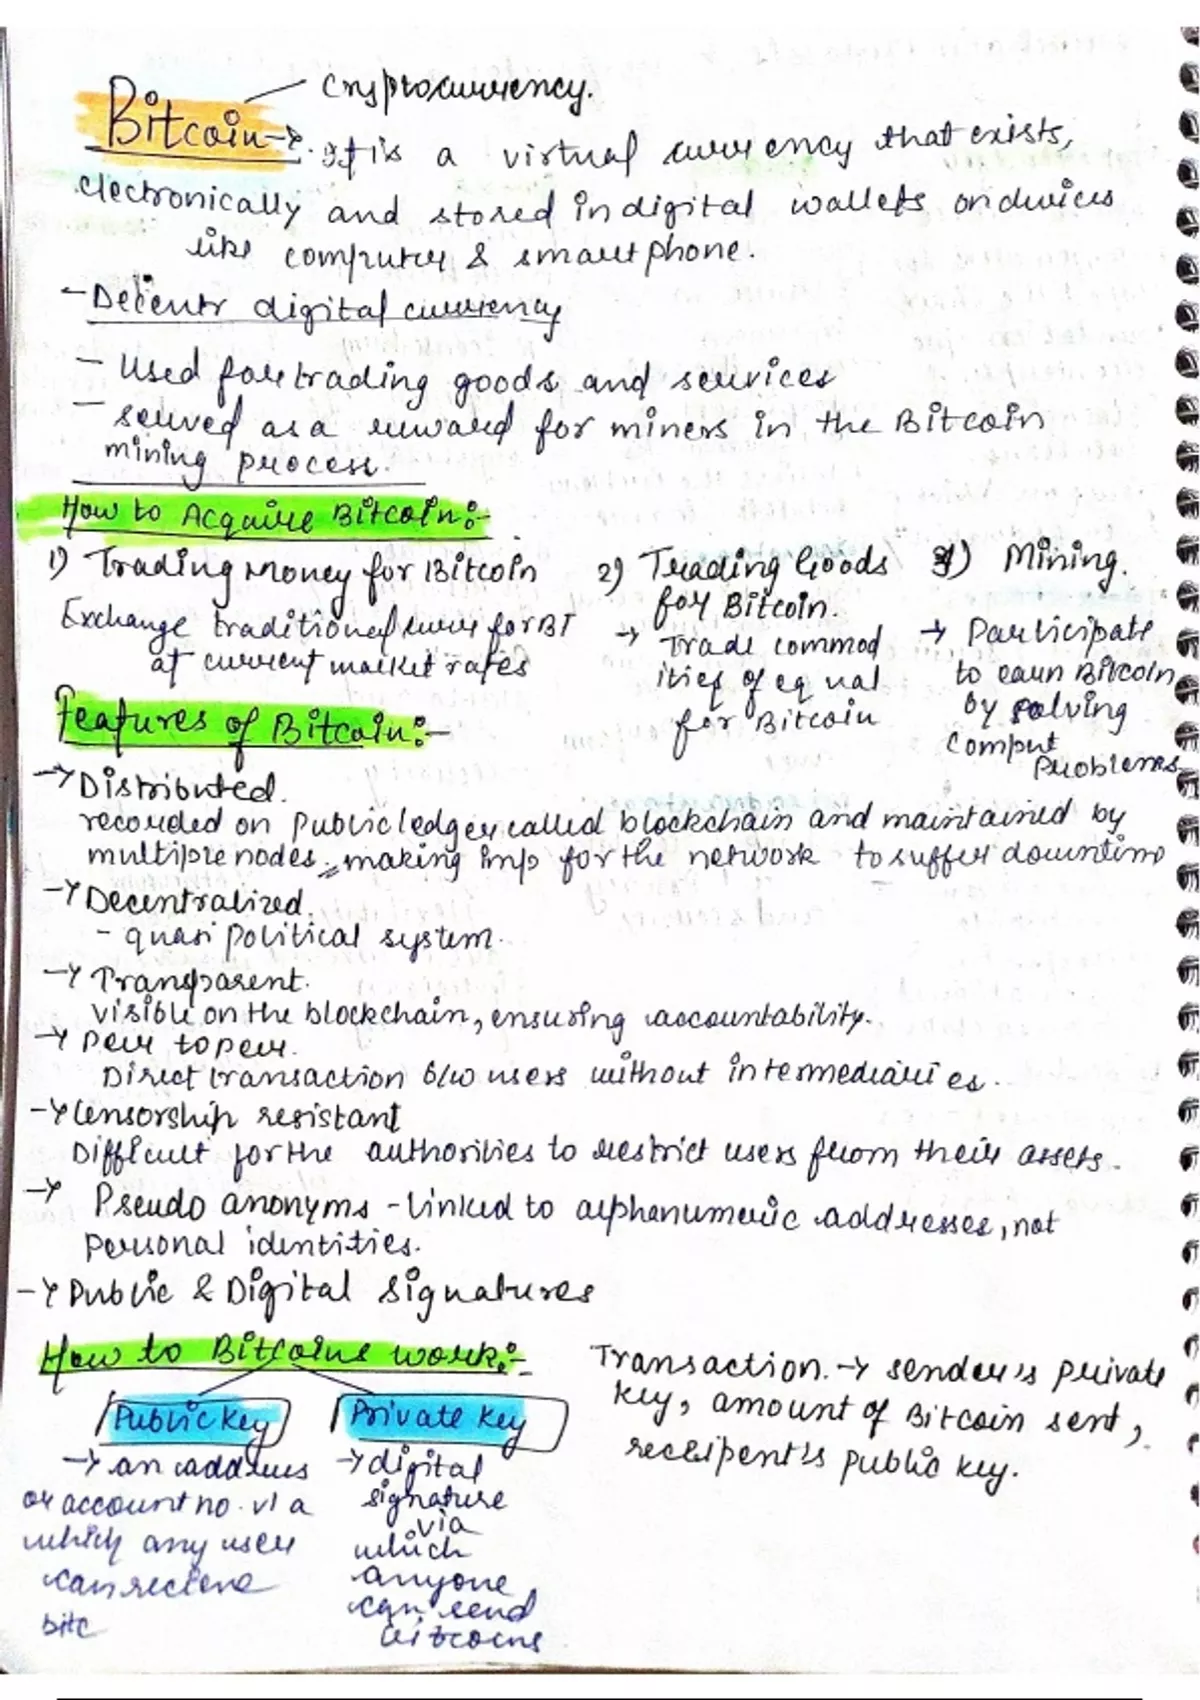 Cryptocurrency.
Bitcoin → It is a virtual currency that exists,
electronically and stored in digital wallets on devices
like computer & smartphone.
- Decentr digital currency
- Used for trading goods and services
- served as a reward for miners in the Bitcoin
mining process.
How to Acquire Bitcoin:-
1) Trading money for Bitcoin
Exchange traditional curr for BT
at current market rates
2) Trading Goods
for Bitcoin.
→ Trade commod
ities of equal
for Bitcoin
3) Mining.
→ Participate
to earn Bitcoin
by solving
comput
problems
Features of Bitcoin:-
→ Distributed.
recorded on public ledger called blockchain and maintained by
multiple nodes, making imp for the network to suffer downtime
→ Decentralized.
- quasi political system.
→ Transparent.
visible on the blockchain, ensuring accountability.
→ Peer to peer.
Direct transaction b/w users without intermediaries.
→ Censorship resistant
Difficult for the authorities to restrict users from their assets.
→ Pseudo anonyms - Linked to alphanumeric addresses, not
personal identities.
→ Public & Digital Signatures
How to Bitcoins work:-
Public key
→ an address
or account no. via
which any user
can recieve
bitc
Private key
→ digital
signature
via
which
anyone
can send
bitcoins
Transaction. → sender's private
key, amount of Bitcoin sent,
receipent's public key.